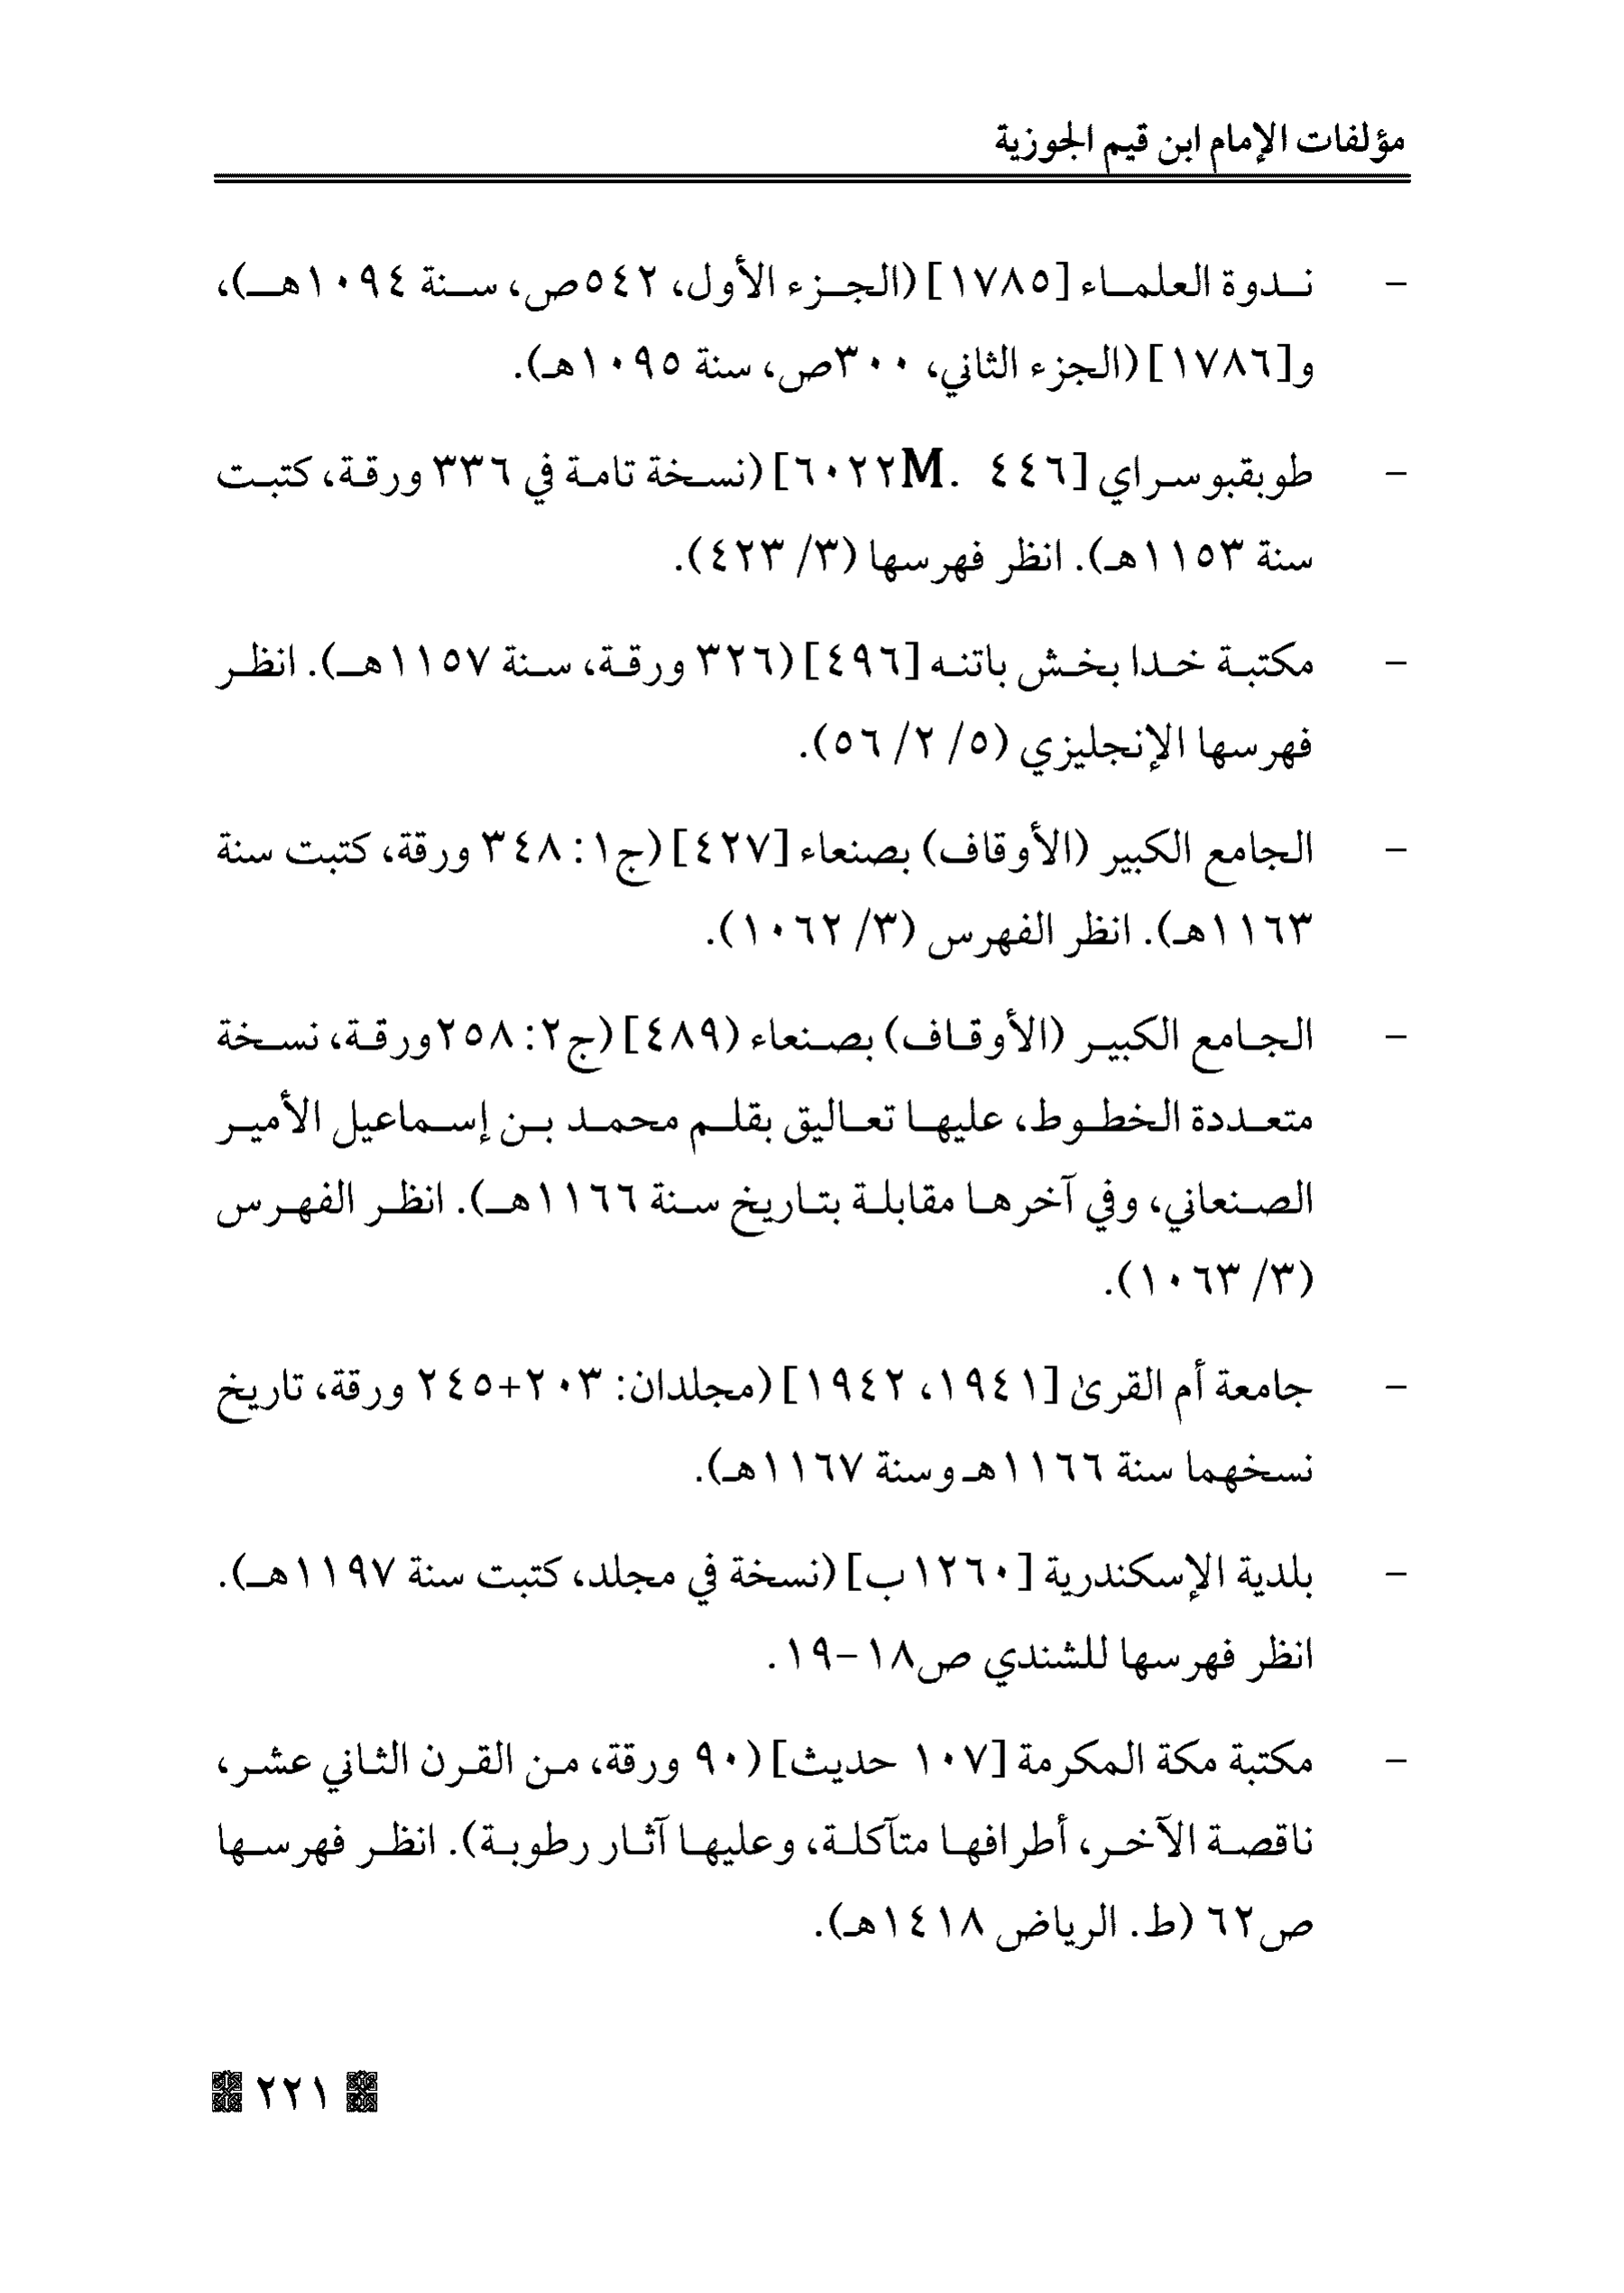 مؤلفات الإمام ابن قيم الجوزية
- ندوة العلماء [١٧٨٥] (الجزء الأول، ٥٤٢ص، سنة ١٠٩٤هـ)،
و[١٧٨٦] (الجزء الثاني، ٣٠٠ص، سنة ١٠٩٥هـ).
- طوبقبوسراي [٤٤٦ .M٦٠٢٢] (نسخة تامة في ٣٣٦ ورقة، كتبت
سنة ١١٥٣هـ). انظر فهرسها (٣/ ٤٢٣).
- مكتبة خدا بخش باتنه [٤٩٦] (٣٢٦ ورقة، سنة ١١٥٧هـ). انظر
فهرسها الإنجليزي (٥/ ٢/ ٥٦).
- الجامع الكبير (الأوقاف) بصنعاء [٤٢٧] (ج١: ٣٤٨ ورقة، كتبت سنة
١١٦٣هـ). انظر الفهرس (٣/ ١٠٦٢).
- الجامع الكبير (الأوقاف) بصنعاء (٤٨٩] (ج٢: ٢٥٨ورقة، نسخة
متعددة الخطوط، عليها تعاليق بقلم محمد بن إسماعيل الأمير
الصنعاني، وفي آخرها مقابلة بتاريخ سنة ١١٦٦هـ). انظر الفهرس
(٣/ ١٠٦٣).
- جامعة أم القرىٰ [١٩٤١، ١٩٤٢] (مجلدان: ٢٠٣+٢٤٥ ورقة، تاريخ
نسخهما سنة ١١٦٦هـ وسنة ١١٦٧هـ).
- بلدية الإسكندرية [١٢٦٠ب] (نسخة في مجلد، كتبت سنة ١١٩٧هـ).
انظر فهرسها للشندي ص١٨-١٩.
- مكتبة مكة المكرمة [١٠٧ حديث] (٩٠ ورقة، من القرن الثاني عشر،
ناقصة الآخر، أطرافها متآكلة، وعليها آثار رطوبة). انظر فهرسها
ص٦٢ (ط. الرياض ١٤١٨هـ).
٢٢١